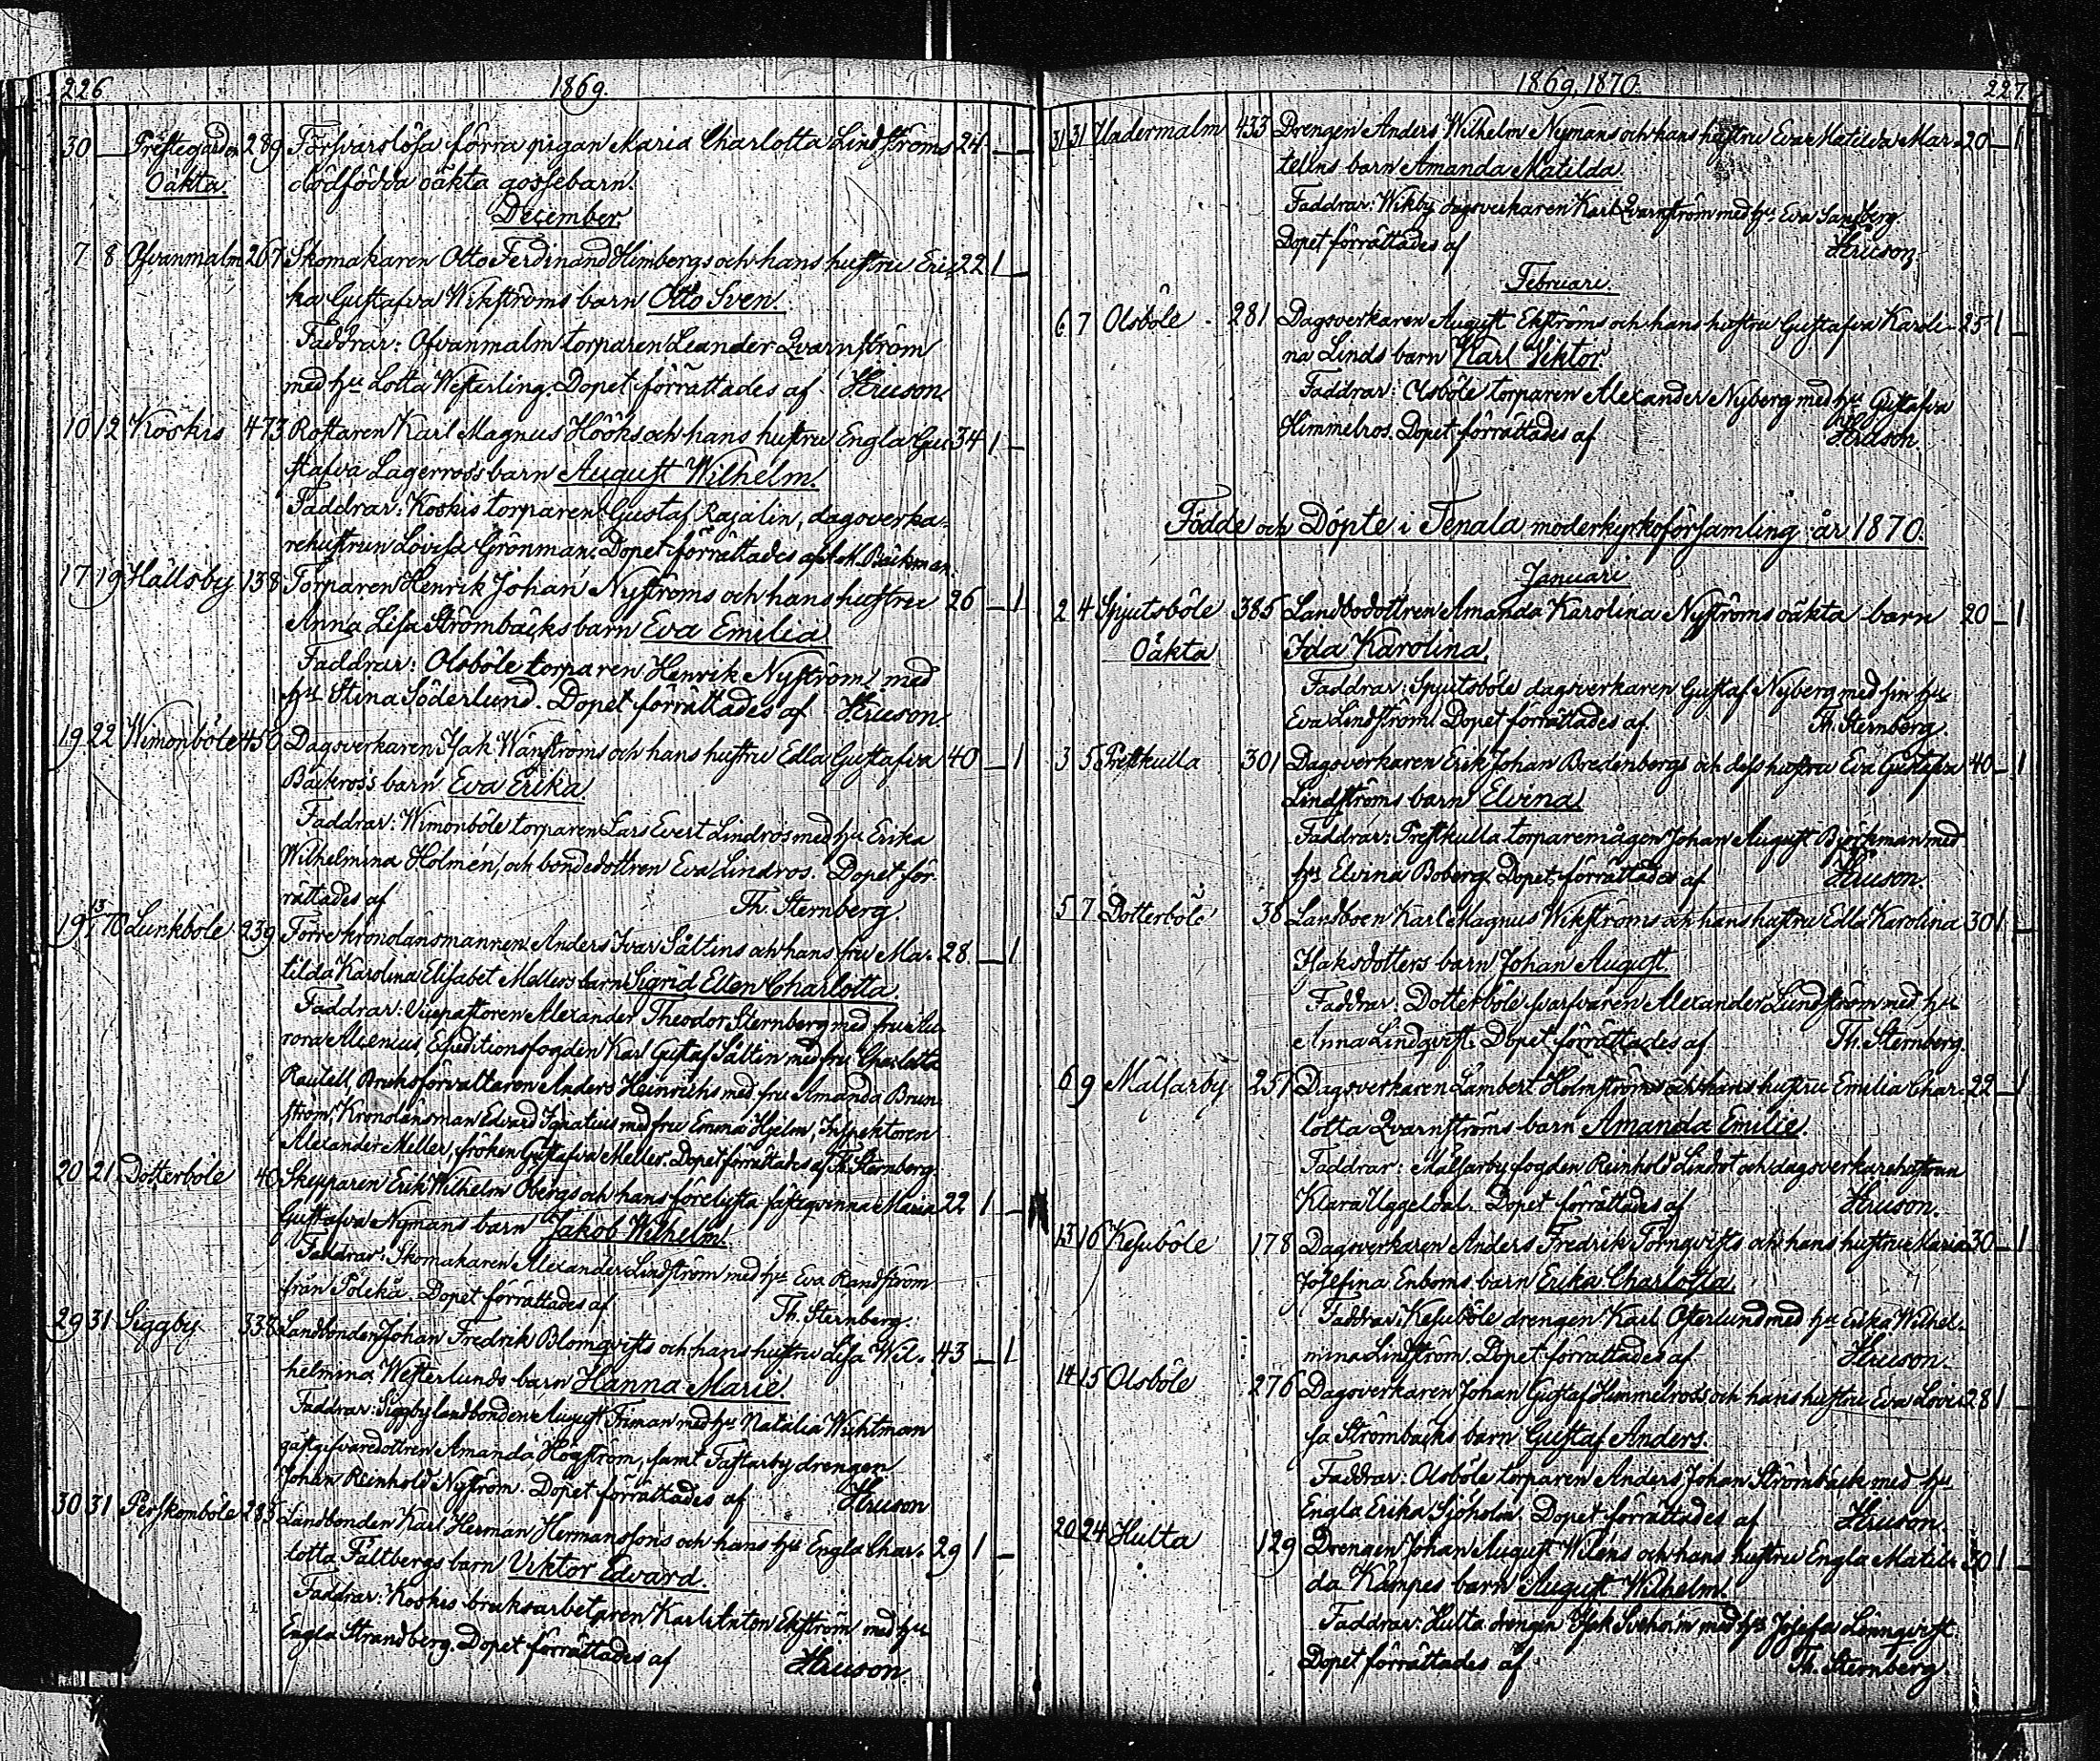 226 1869.
30 — Prestegården 289 Försvarslösa förra pigan Maria Charlotta Lindströms 24 —
Oäkta. dödfödda oäkta gossebarn.
December.
7 8 Ofvanmalm 267 Skomakaren Otto Ferdinand Himbergs och hans hustru Eri- 22 1 —
ka Gustafva Wikströms barn Otto Sven.
Faddrar: Ofvanmalm torparen Leander Qvarnström
med hu Lotta Westerling. Dopet förrättades af
10 12 Koskis 473 Rottaren Karl Magnus Hööks och hans hustru Engla Gu- 34 1 —
stafva Lagerross barn August Wilhelm.
Faddrar: Koskis torparen Gustaf Rajalin, dagsverka-
rehustrun Lovisa Grönman. Dopet förrättades af Bäckman.
17 19 Hållsby 158 Torparen Henrik Johan Nyströms och hans hustru 26 — 1
Anna Lisa Strömbäcks barn Eva Emilia.
Faddrar: Olsböle torparen Henrik Nyström med
hu Stina Söderlund. Dopet förrättades af
19 22 Wimonböle 450 Dagsverkaren Isak Wänströms och hans hustru Edla Gustafva 40 — 1
Backross barn Eva Erika
Faddrar: Wimonböle torparen Lars Evert Lindros med hu Erika
Wilhelmina Holmén, och bondedottren Eva Lindros. Dopet för-
rättades af Th. Sternberg.
19 13/1 70 Lunkböle 239 Förre kronolänsmannen Anders Ivar Sältins och hans fru Ma- 28 — 1
tilda Karolina Elisabet Mellers barn Sigrid Ellen Charlotta.
Faddrar: Vicepastoren Alexander Theodor Sternberg med fru Au-
rora Alcenius, Expeditionsfogden Karl Gustaf Sältin med fru Charlotta
Rautell, Bruksförvaltaren Anders Heinrichs med fru Amanda Brun-
ström, Kronolänsman Edvard Ignatius med fru Emma Hjelm, Inspektoren
Alexander Meller, fröken Gustafva Meller. Dopet förrättades af Th. Sternberg.
20 21 Dotterböle 40 Skepparen Erik Wilhelm Öbergs och hans fästeqvinna Maria 22 1 —
Gustafva Nymans barn Jakob Wilhelm.
Faddrar: Skomakaren Alexander Lindström med hu Eva Randström
från Dopet förrättades af Th. Sternberg.
29 31 Siggby 338 Landbonden Johan Fredrik Blomqvists och hans hustru Lisa Wil- 43 — 1
helmina Westerlunds barn Hanna Marie.
Faddrar: Siggby landbonden August Friman med hu Natalia Wichtman
gästgifvaredottren Amanda Högström, samt Tastarby drengen
Johan Reinhold Nyström. Dopet förrättades af
30 31 Perskomböle 285 Landbonden Karl Herman Hermanssons och hans hu Engla Char- 29 1 —
lotta Fältbergs barn Viktor Edvard.
Faddrar: Koskis bruksarbetaren Karl Anton Ekström med hu
Engla Strandberg. Dopet förrättades af
1869, 1870. 227
31 31 Undermalm 433 Drengen Anders Wilhelm Nymans och hans hustru Eva Matilda Mar- 20 — 1
telins barn Amanda Matilda.
Faddrar: Wikby dagsverkaren Karl Qvarnström med hu Eva Sandberg.
Dopet förrättades af
Februari.
6 7 Olsböle 281 Dagsverkaren August Ekströms och hans hustru Gustafva Karoli- 25 1 —
na Linds barn Karl Viktor
Faddrar: Olsböle torparen Alexander Nyberg med hu Gustafva
Himmelros. Dopet förrättades af
Födde och Döpte i Tenala moderkyrkoförsamling år 1870.
Januari
2 4 Spjutsböle 385 Landbodottren Amanda Karolina Nyströms oäkta barn 20 — 1
Oäkta Ida Karolina.
Faddrar: Spjutsböle dagsverkaren Gustaf Nyberg med sin hu
Eva Lindström. Dopet förrättades af Th. Sternberg.
3 5 Prestkulla 301 Dagsverkaren Erik Johan Bredenbergs och dess hustru Eva Gustafva 40 — 1
Lindströms barn Elvina.
Faddrar: Prestkulla torparemågen Johan August Björkman med
hu Elvina Boberg. Dopet förrättades af
5 7 Dotterböle 38 Landboen Karl Magnus Wikströms och hans hustru Edla Karolina 30 1 —
Isaksdotters barn Johan August.
Faddrar. Dotterböle svarfvaren Alexander Lundström med hu
Anna Lindqvist. Dopet förrättades af Th. Sternberg.
6 9 Målsarby 257 Dagsverkaren Lambert Holmströms och hans hustru Emilia Char- 22 — 1
lotta Qvarnströms barn Amanda Emilie.
Faddrar: Målsarby fogden Reinhold Lindrot och dagsverkarehustrun
Klara Uggeldal. Dopet förrättades af
13 16 Kesuböle 178 Dagsverkaren Anders Fredrik Törnqvists och hans hustru Maria 30 — 1
Josefina Enboms barn Erika Charlotta.
Faddrar: Kesuböle drengen Karl Österlund med hu Erika Wilhel-
mina Lindström. Dopet förrättades af
14 15 Olsböle 276 Dagsverkaren Johan Gustaf Himmelross och hans hustru Eva Lovi- 28 1 —
sa Strömbäcks barn Gustaf Anders.
Faddrar: Olsböle torparen Anders Johan Strömbäck med hu
Engla Erika Sjöholm. Dopet förrättades af
20 24 Hulta 129 Drengen Johan August Wiléns och hans hustru Engla Matil- 30 1 —
da Kämpes barn August Wilhelm.
Faddrar: Hulta drengen Isak Sveholm med hu Josefa Lönnqvist.
Dopet förrättades af Th. Sternberg.